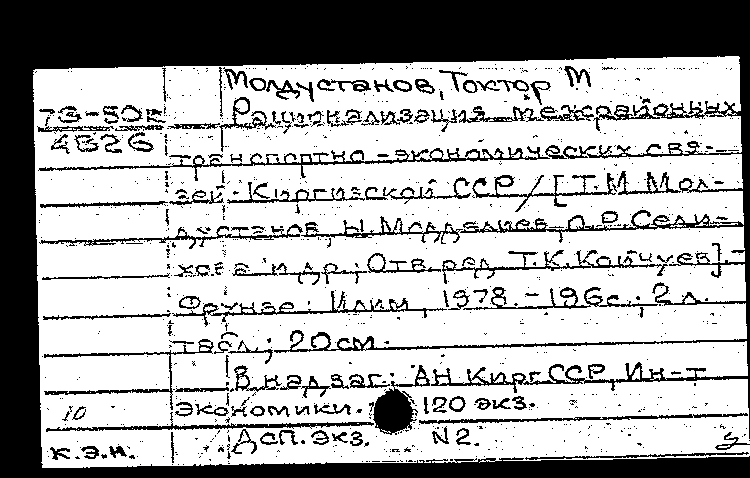 Молдустанов, Токтор М
Рационализация межрайонных
4826
транспортно-экономических свя-
зей Киргизской ССР / [Т.М. Мол-
дустанов, Н. Молдалиев, Л.Р. Сели-
хова и др.; Отв. ред. Т.К. Койчуев]. -
Фрунзе: Илим, 1978. - 196с.; 2 л.
табл.; 20см.
В надзаг.: АН Кирг.ССР, Ин-т
10 экономики. 120 экз.
к.э.н. Доп. экз. N2.